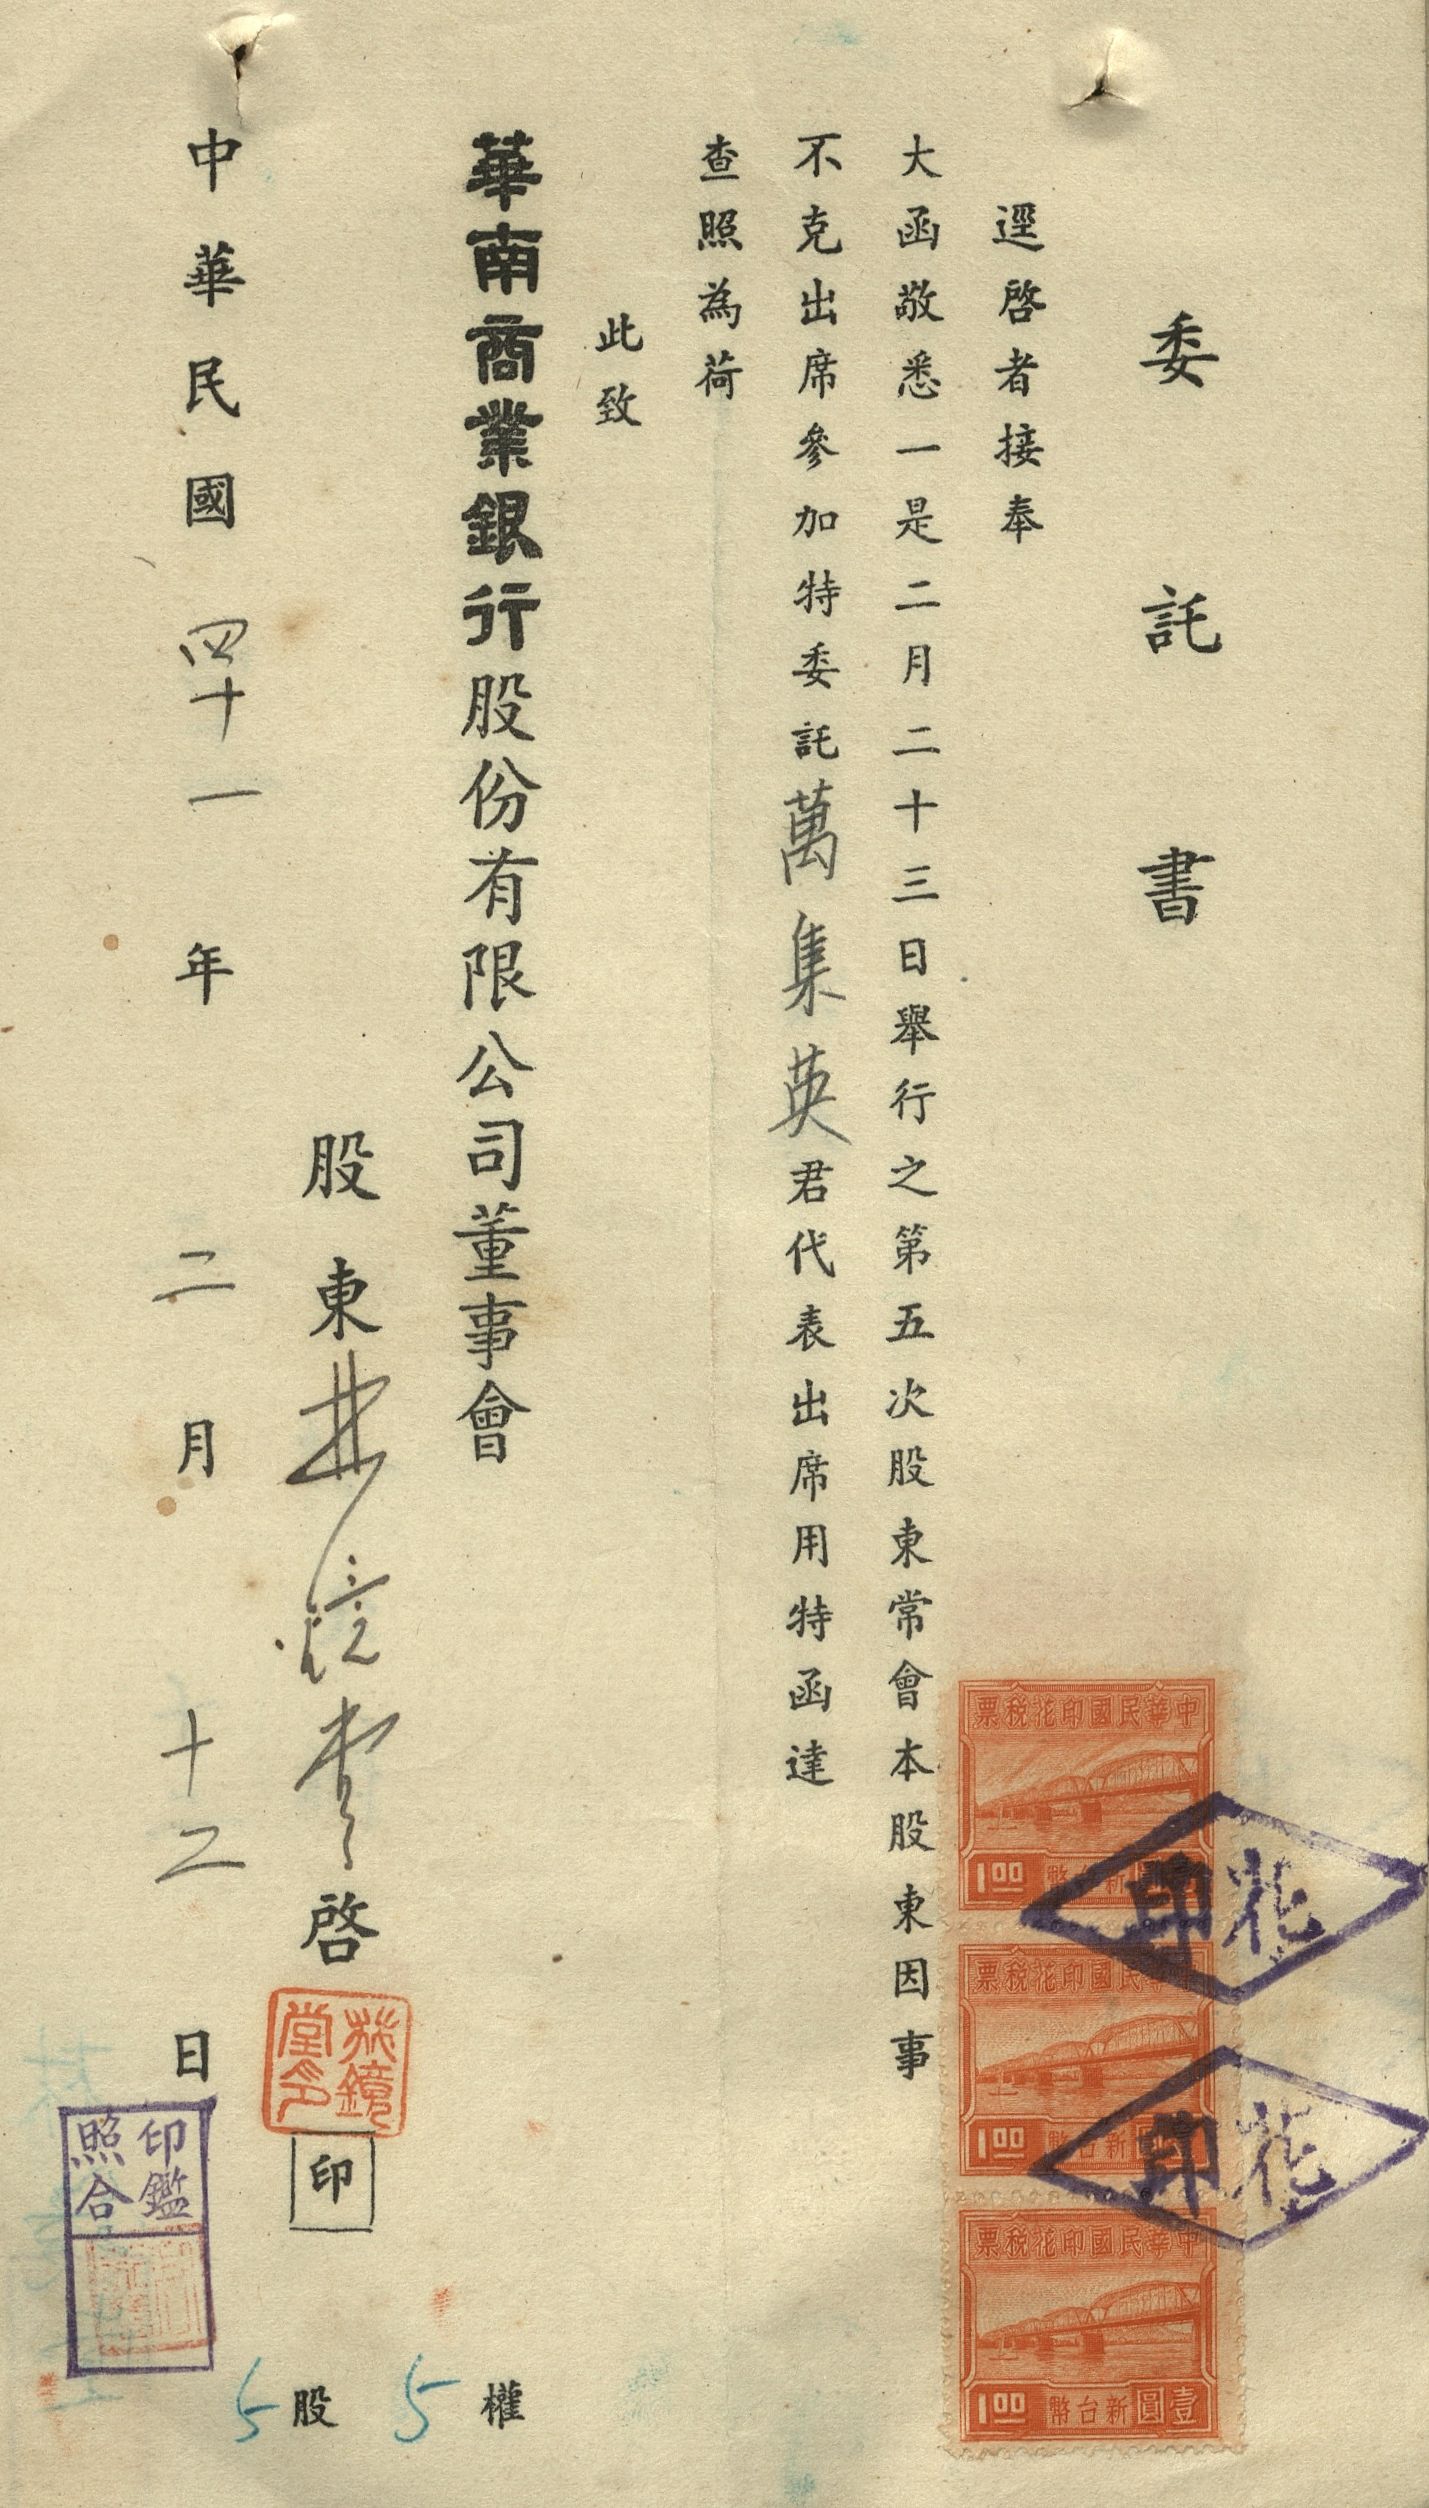 委託書
逕啓者接奉
大函敬悉一是二月二十三日舉行之第五次股東常會本股東因事
不克出席參加特委託萬集英君代表出席用特函達
查照為荷
此致
華南商業銀行股份有限公司董事會
股東 啓
印
中華民國四十一年二月十二日
5權
5股
印鑑照合
中華民國印花稅票
1.00 新台幣
花印
中華民國印花稅票
1.00 新台幣
花印
中華民國印花稅票
1.00 新台幣壹圓